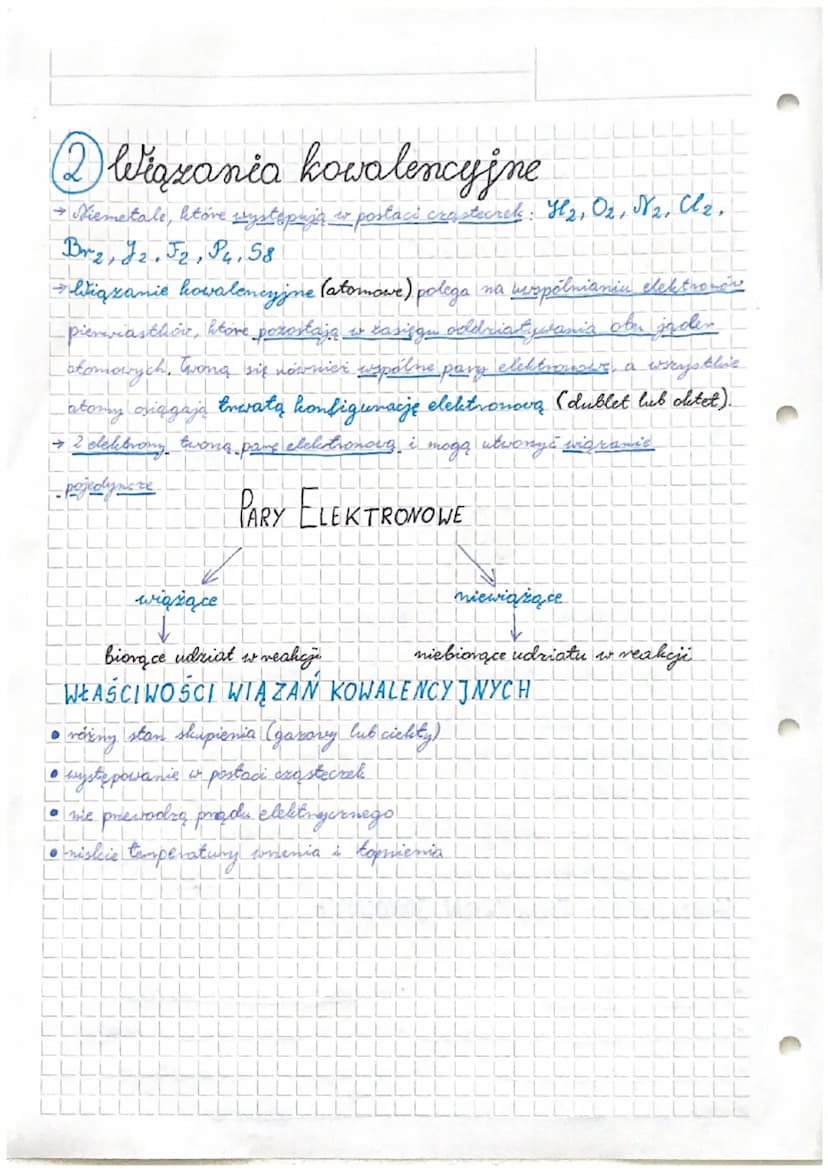 2 Wiązania kowalencyjne
→ Niemetale, które występują w postaci cząsteczek: H2, O2, N2, Cl2,
Br2, J2, F2, P4, S8
→ Wiązanie kowalencyjne (atomowe) polega na uwspólnianiu elektronów
pierwiastków, które pozostają w zasięgu oddziaływania obu jąder
atomowych. Tworzą się również wspólne pary elektronowe, a wszystkie
atomy osiągają trwałą konfigurację elektronową (dublet lub oktet).
→ 2 elektrony tworzą parę elektronową i mogą utworzyć wiązanie
pojedyncze
PARY ELEKTRONOWE
wiążące niewiążące
biorące udział w reakcji niebiorące udziału w reakcji
WŁAŚCIWOŚCI WIĄZAŃ KOWALENCYJNYCH
• różny stan skupienia (gazowy lub ciekły)
• występowanie w postaci cząsteczek
• nie przewodzą prądu elektrycznego
• niskie temperatury wrzenia i topnienia